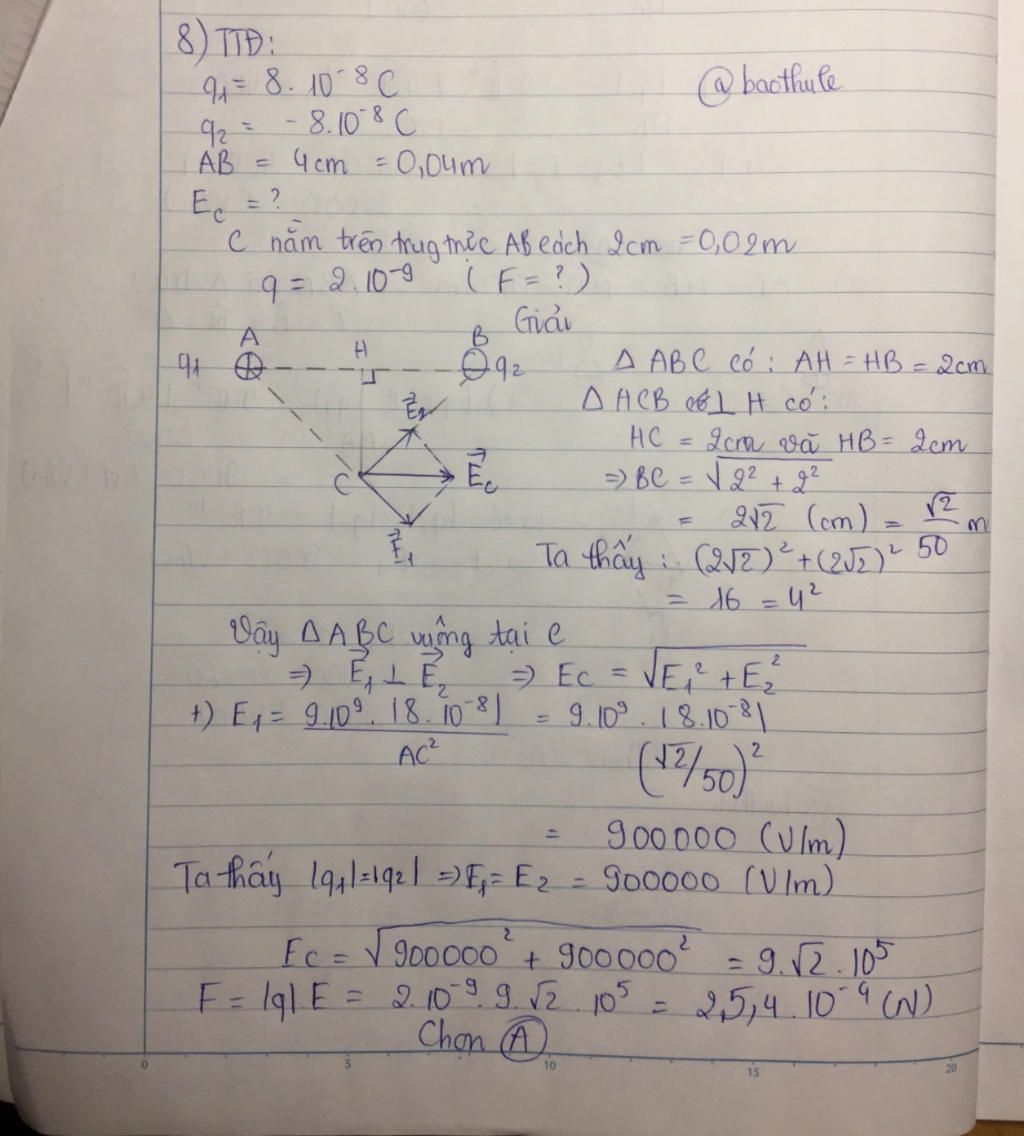 8) TTĐ:
q1 = 8. 10^-8 C
@baothule
q2 = - 8.10^-8 C
AB = 4cm = 0,04m
Ec = ?
C nằm trên trug trực AB cách 2cm = 0,02m
q = 2.10^-9 ( F = ? )
Giải
A H B
q1 q2
E2
C Ec
E1
Δ ABC có : AH = HB = 2cm
Δ HCB ⊥ H có :
HC = 2cm và HB = 2cm
⇒ BC = √(2² + 2²)
= 2√2 (cm) = √2/50 m
Ta thấy : (2√2)² + (2√2)²
= 16 = 4²
Vậy Δ ABC vuông tại C
⇒ E1 ⊥ E2 ⇒ Ec = √(E1² + E2²)
+) E1 = 9.10^9. |8. 10^-8| / AC² = 9.10^9 . |8.10^-8| / (√2/50)²
= 900000 (V/m)
Ta thấy |q1|=|q2| ⇒ E1 = E2 = 900000 (V/m)
Ec = √(900000² + 900000²) = 9.√2 . 10^5
F = |q|.E = 2.10^-9. 9.√2 . 10^5 = 25,4. 10^-4 (N)
Chọn A
0 5 10 15 20